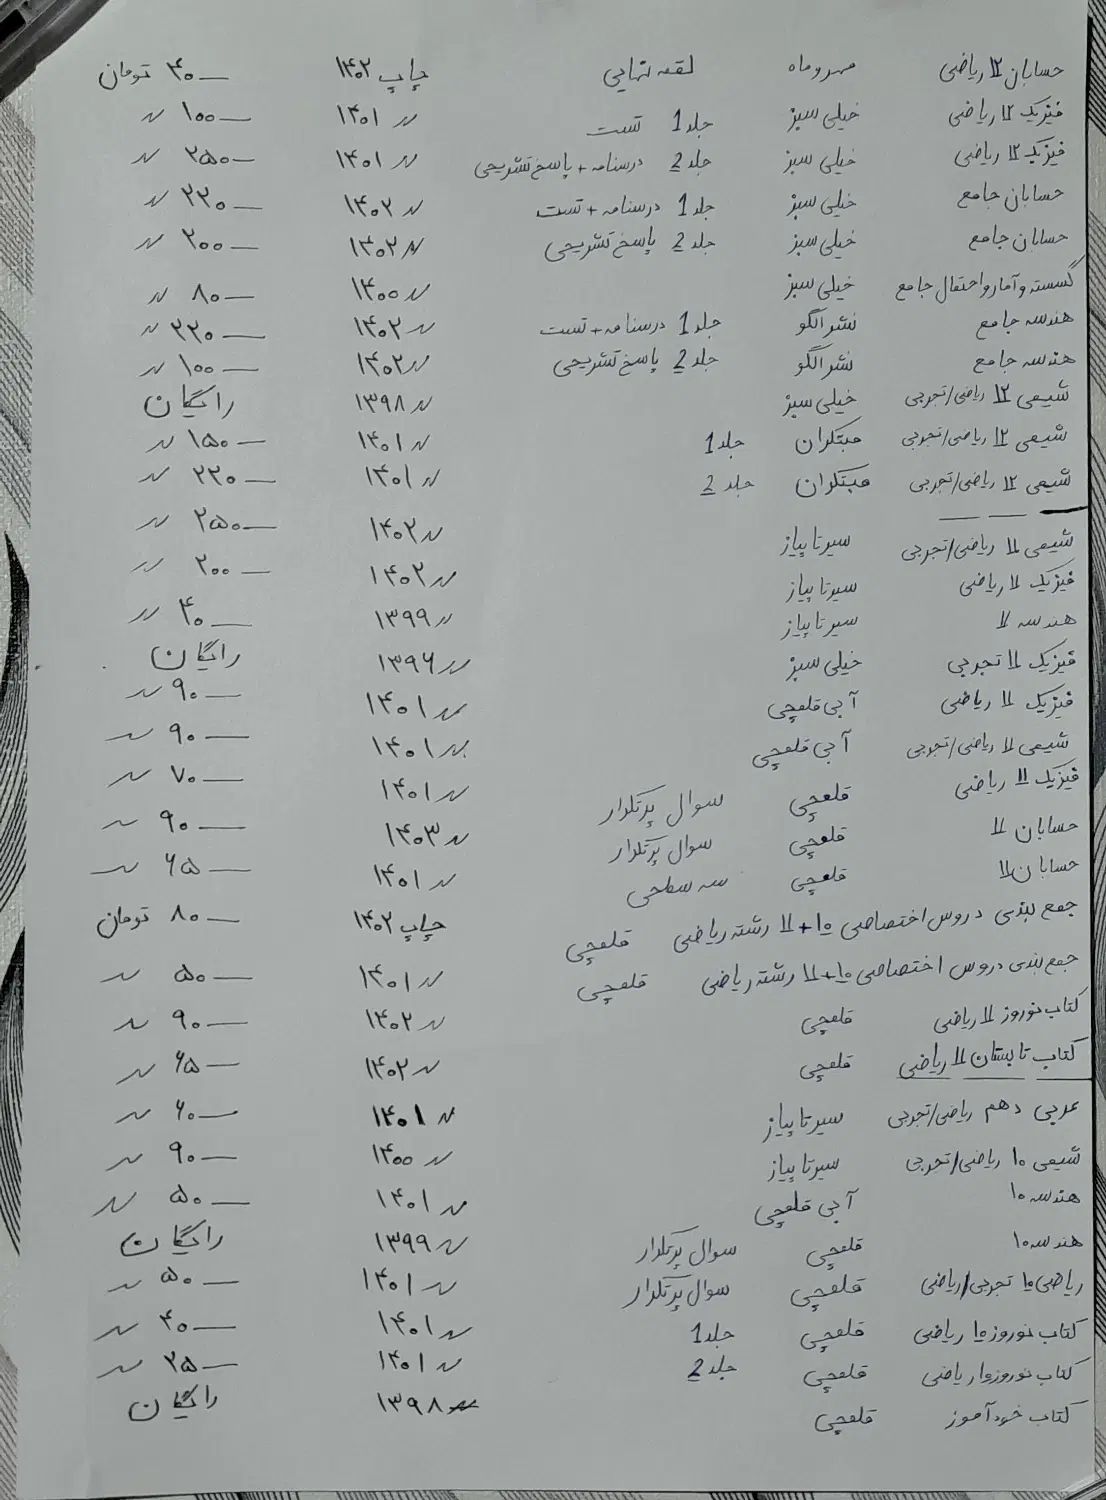 حسابان ۱۲ ریاضی مهروماه لقمه نهایی چاپ ۱۴۰۲ ۴۰ــ تومان
فیزیک ۱۲ ریاضی خیلی سبز جلد 1 تست 〃 ۱۴۰۱ ۱۰۰ــ 〃
فیزیک ۱۲ ریاضی خیلی سبز جلد 2 درسنامه + پاسخ تشریحی 〃 ۱۴۰۱ ۲۵۰ــ 〃
حسابان جامع خیلی سبز جلد 1 درسنامه + تست 〃 ۱۴۰۲ ۲۲۰ــ 〃
حسابان جامع خیلی سبز جلد 2 پاسخ تشریحی 〃 ۱۴۰۲ ۲۰۰ــ 〃
گسسته و آمار و احتمال جامع خیلی سبز 〃 ۱۴۰۰ ۸۰ــ 〃
هندسه جامع نشر الگو جلد 1 درسنامه + تست 〃 ۱۴۰۲ ۲۲۰ــ 〃
هندسه جامع نشر الگو جلد 2 پاسخ تشریحی 〃 ۱۴۰۲ ۱۰۰ــ 〃
شیمی ۱۲ ریاضی/تجربی خیلی سبز 〃 ۱۳۹۸ رایگان
شیمی ۱۲ ریاضی/تجربی مبتکران جلد 1 〃 ۱۴۰۱ ۱۵۰ــ 〃
شیمی ۱۲ ریاضی/تجربی مبتکران جلد 2 〃 ۱۴۰۱ ۲۲۰ــ 〃
شیمی ۱۱ ریاضی/تجربی سیر تا پیاز 〃 ۱۴۰۲ ۲۵۰ــ 〃
فیزیک ۱۱ ریاضی سیر تا پیاز 〃 ۱۴۰۲ ۲۰۰ــ 〃
هندسه ۱۱ سیر تا پیاز 〃 ۱۳۹۹ ۴۰ــ 〃
فیزیک ۱۱ تجربی خیلی سبز 〃 ۱۳۹۶ رایگان
فیزیک ۱۱ ریاضی آبی قلمچی 〃 ۱۴۰۱ ۹۰ــ 〃
شیمی ۱۱ ریاضی/تجربی آبی قلمچی 〃 ۱۴۰۱ ۹۰ــ 〃
فیزیک ۱۱ ریاضی قلمچی سوال پرتکرار 〃 ۱۴۰۱ ۷۰ــ 〃
حسابان ۱۱ قلمچی سوال پرتکرار 〃 ۱۴۰۳ ۹۰ــ 〃
حسابان ۱۱ قلمچی سه سطحی 〃 ۱۴۰۱ ۶۵ــ 〃
جمع بندی دروس اختصاصی ۱۰+۱۱ رشته ریاضی قلمچی چاپ ۱۴۰۲ ۸۰ــ تومان
جمع بندی دروس اختصاصی ۱۰+۱۱ رشته ریاضی قلمچی 〃 ۱۴۰۱ ۵۰ــ 〃
کتاب نوروز ۱۱ ریاضی قلمچی 〃 ۱۴۰۲ ۹۰ــ 〃
کتاب تابستان ۱۱ ریاضی قلمچی 〃 ۱۴۰۲ ۶۵ــ 〃
عربی دهم ریاضی/تجربی سیر تا پیاز 〃 ۱۴۰۱ ۶۰ــ 〃
شیمی ۱۰ ریاضی/تجربی سیر تا پیاز 〃 ۱۴۰۰ ۹۰ــ 〃
هندسه ۱۰ آبی قلمچی 〃 ۱۴۰۱ ۵۰ــ 〃
هندسه ۱۰ قلمچی سوال پرتکرار 〃 ۱۳۹۹ رایگان
ریاضی ۱۰ تجربی/ریاضی قلمچی سوال پرتکرار 〃 ۱۴۰۱ ۵۰ــ 〃
کتاب نوروز ۱۰ ریاضی قلمچی جلد 1 〃 ۱۴۰۱ ۴۰ــ 〃
کتاب نوروز ۱۰ ریاضی قلمچی جلد 2 〃 ۱۴۰۱ ۲۵ــ 〃
کتاب خودآموز قلمچی 〃 ۱۳۹۸ رایگان